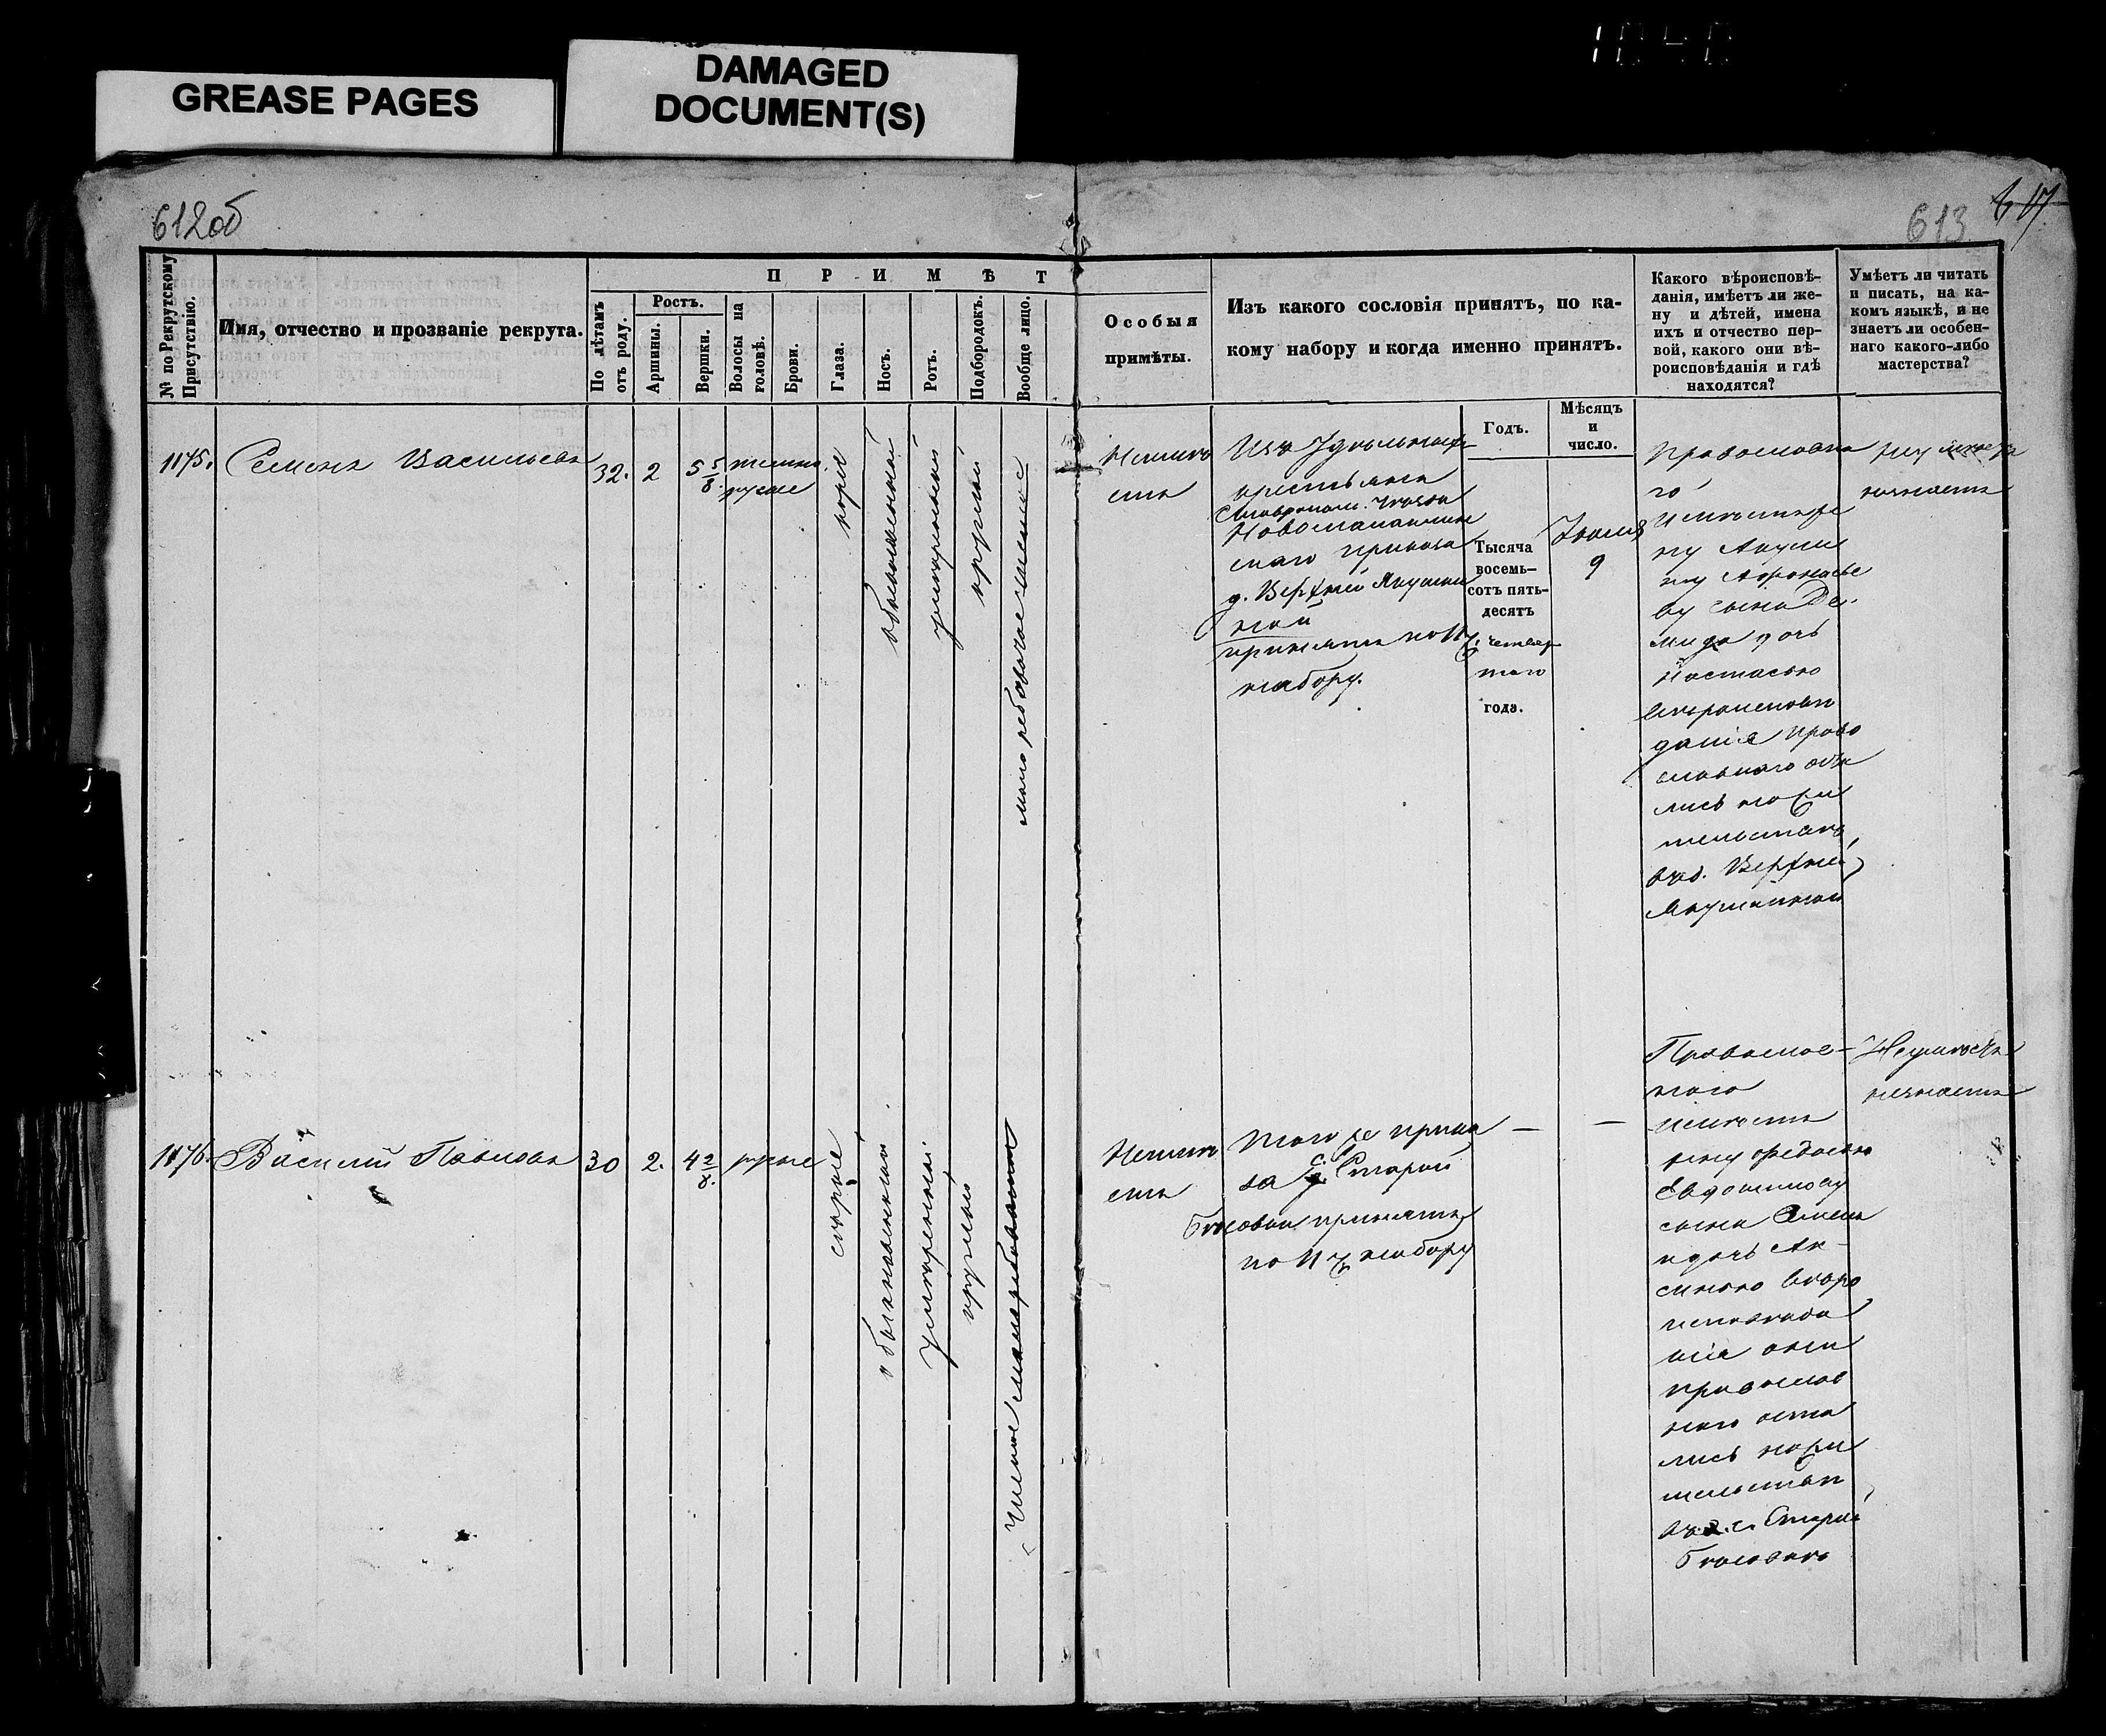 GREASE PAGES
DAMAGED
DOCUMENT(S)
612об
613
617
№ по Рекрутскому
Присутствію.
Имя, отчество и прозваніе рекрута.
П Р И М Ѣ Т
По лѣтамъ
отъ роду.
Ростъ.
Аршины.
Вершки.
Волосы на
головѣ.
Брови.
Глаза.
Носъ.
Ротъ.
Подбородокъ.
Вообще лицо.
Особыя
примѣты.
Изъ какого сословія принятъ, по ка-
кому набору и когда именно принятъ.
Годъ.
Мѣсяцъ
и
число.
Какого вѣроисповѣ-
данія, имѣетъ ли же-
ну и дѣтей, имена
ихъ и отчество пер-
вой, какого они вѣ-
роисповѣданія и гдѣ
находятся?
Умѣетъ ли читать
и писать, на ка-
комъ языкѣ, и не
знаетъ ли особен-
наго какого-либо
мастерства?
1175.
Семенъ Васильевъ
32.
2
5 5/8.
темно
русые
карія
обыкновенный
умѣренный
круглый
мало рябоватое чистое
Неимѣ
етъ
Изъ Удѣльныхъ
крестьянъ
Ставропол. Уѣзда
Новомалыклин
скаго приказа
д. Верхней Якушки
ной
принятъ по 11 ч.
набору.
Тысяча
восемь-
сотъ пять-
десятъ
четвер
таго
года.
Іюля
9
Православна
го
имѣетъ же
ну Акули
ну Афонасье
ву сына Де-
мида дочь
Настасью
вѣроисповѣ
данія право
славнаго оста
лись на жи
тельствѣ
въ д. Верхней
Якушкиной
неумѣетъ
незнаетъ
1176.
Василій Павловъ
30
2.
4 2/8.
русые
сѣрые
обыкновенный
умѣренный
круглый
Чистое
Неимѣ
етъ
того же прика
за с. Старой
Бѣсовки принятъ
по 11 ч. набору
—
—
Православ-
наго
имѣетъ
жену Федосью
Евдокимову
сына
и дочь Ак-
синью вѣро
исповѣда
нія они
православ
наго оста
лись на жи
тельствѣ
въ с. Старой
Бѣсовкѣ
Неумѣетъ
незнаетъ